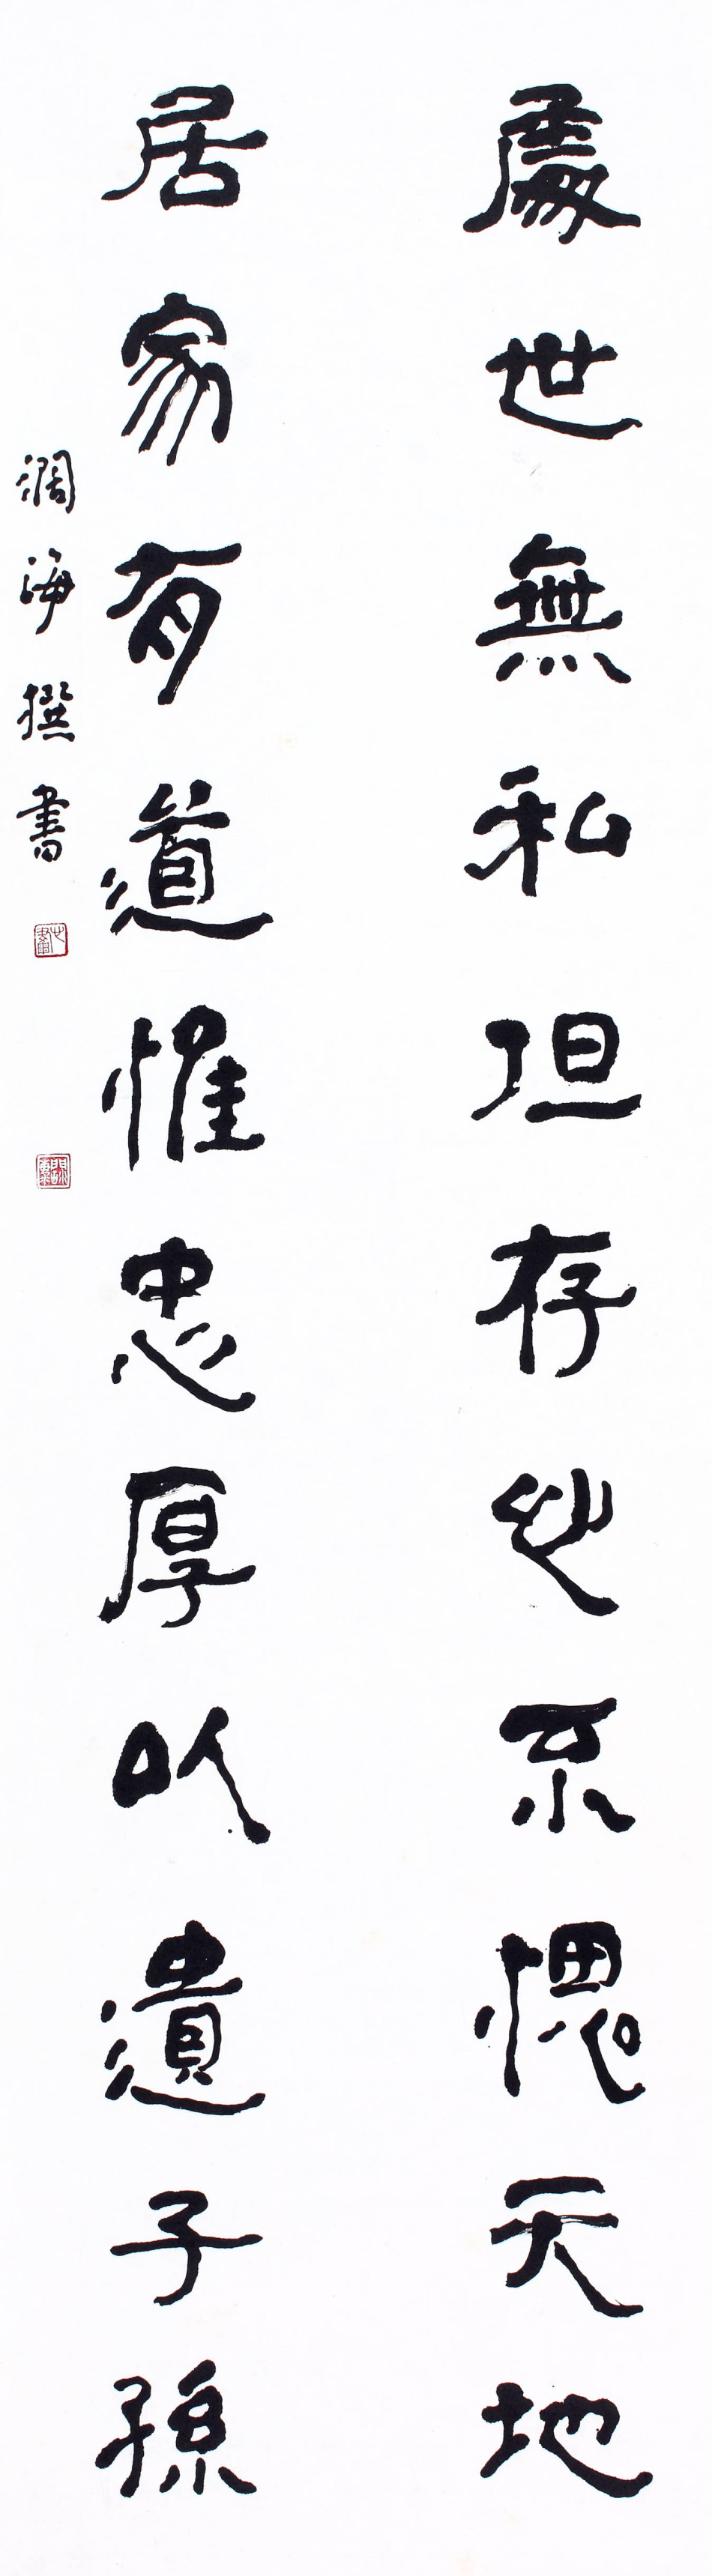 處世無私但存心不愧天地
居家有道惟忠厚以遺子孫
濶海撰書